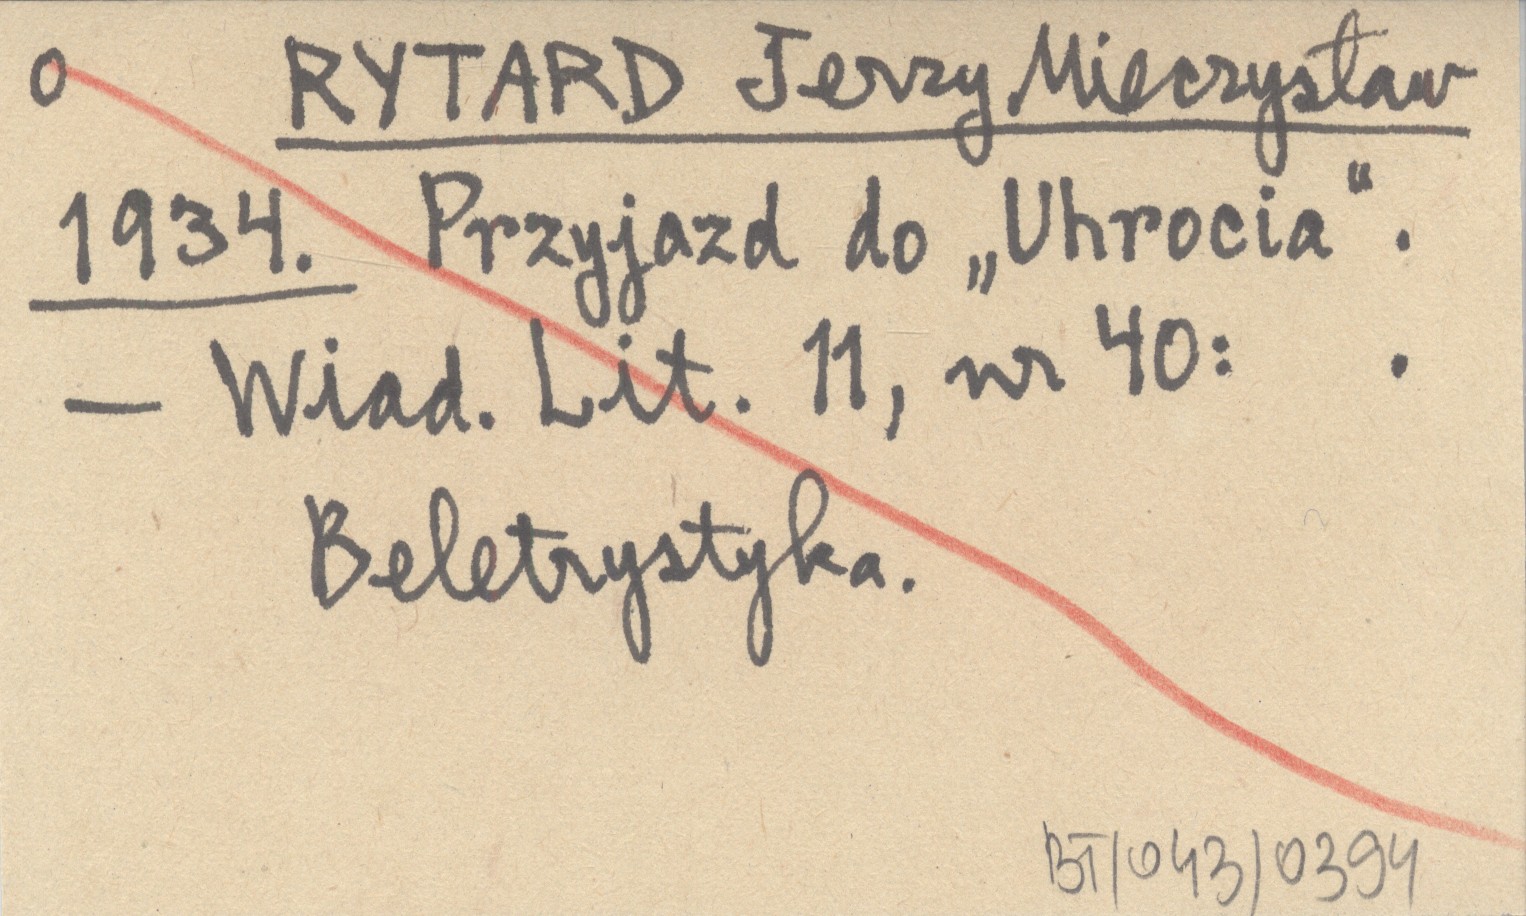 0 RYTARD Jerzy Mieczysław
1934. Przyjazd do „Uhrocia“.
— Wiad. Lit. 11, nr 40: .
Beletrystyka.
BT/043/0394